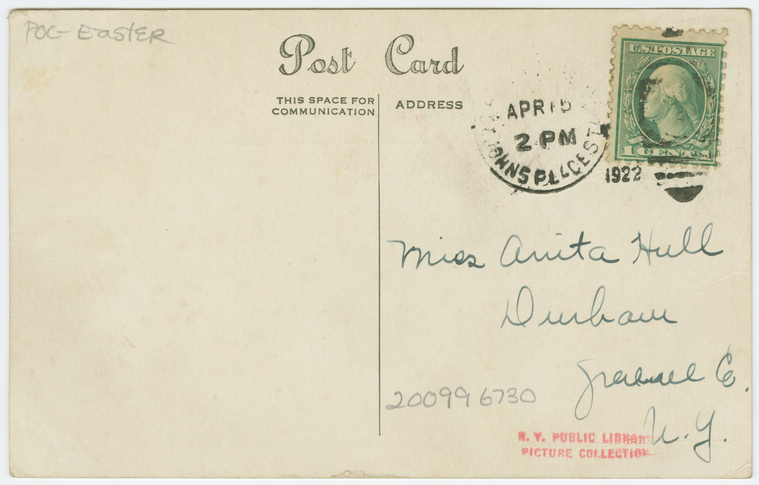 POC- EASTER
Post Card
THIS SPACE FOR COMMUNICATION
ADDRESS
APR 15
2 PM
JOHNS PLACE STA
1922
U.S. POSTAGE
1 CENT
Miss Anita Hull
Durham
Greene Co.
N.Y.
200996730
N. Y. PUBLIC LIBRARY
PICTURE COLLECTION